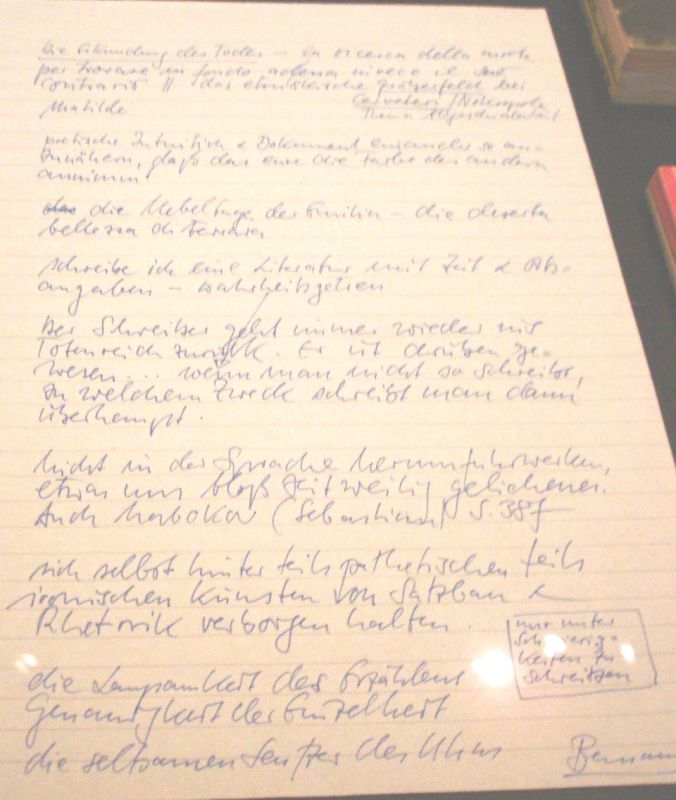 Die Erkundung des Todes – la ricerca della morte
per trovare in fondo invece il suo
contrario // das etruskische Gräberfeld bei
Matilde Cerveteri / Nekropole
Thema
poetische Intuition & Dokument einander so an-
zunähern, daß das eine die Farbe des andern
annimmt
die Nebeltage der Emilia – die deserta
bellezza di Ferrara
schreibe ich eine Literatur mit Zeit & Orts=
angaben – wahrheitsgetreu
Der Schreiber geht immer wieder ins
Totenreich zurück. Er ist drüben ge-
wesen... wenn man nicht so schreibt,
zu welchem Zweck schreibt man dann
überhaupt.
nicht in der Sprache herumfuhrwerken,
etwas uns bloß zeitweilig geliehenes.
Auch Nabokov (Sebastian) S. 387
sich selbst hinter teils pathetischen teils
ironischen Künsten von Satzbau &
Rhetorik verborgen halten.
nur unter
Schwierig=
keiten zu
schreiben
die Langsamkeit des Erzählens
Genauigkeit der Einzelheit
die seltsamen Seufzer des Uhus